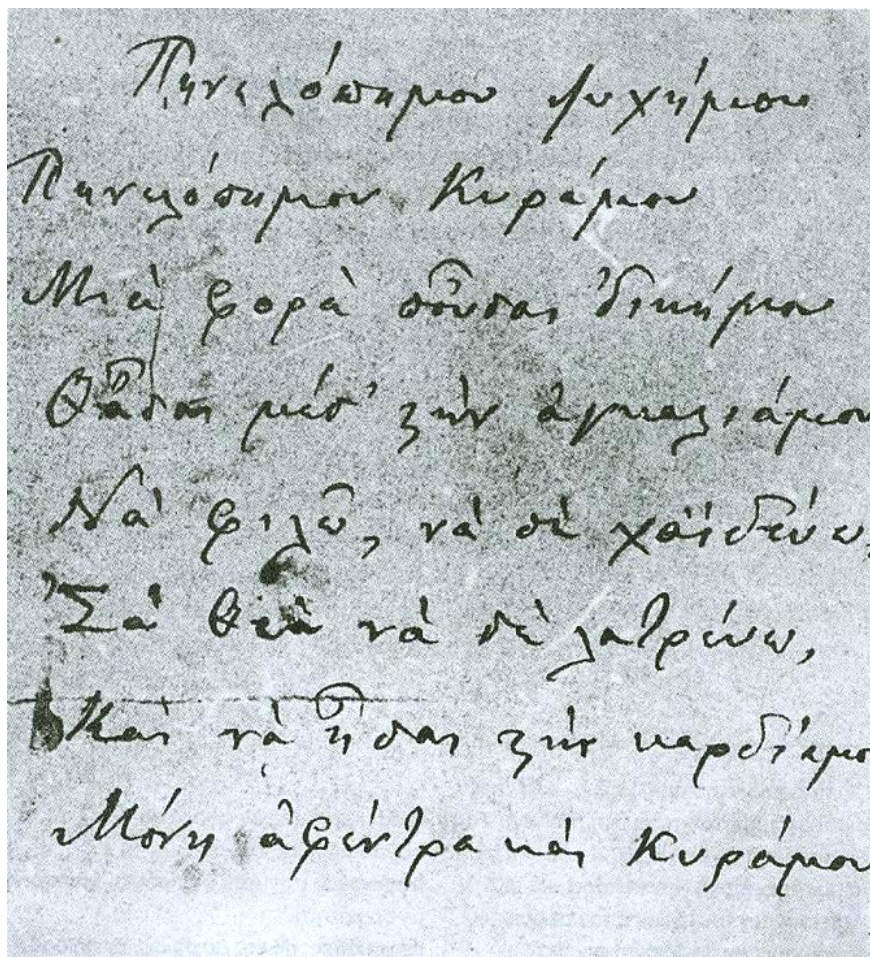 Πηνελόπημου ψυχήμου
Πηνελόπημου Κυράμου
Μιὰ φορὰ ποὖσαι 'δικήμου
Θἆσαι μέσ' στὴν ἀγκαλιάμου
Νὰ φιλῶ, νὰ σὲ χαϊδεύω,
Σὰ θεὰ νὰ σὲ λατρεύω,
Καὶ νὰ ἦσαι στὴν καρδιάμο
Μόνη ἀφέντρα καὶ Κυράμου